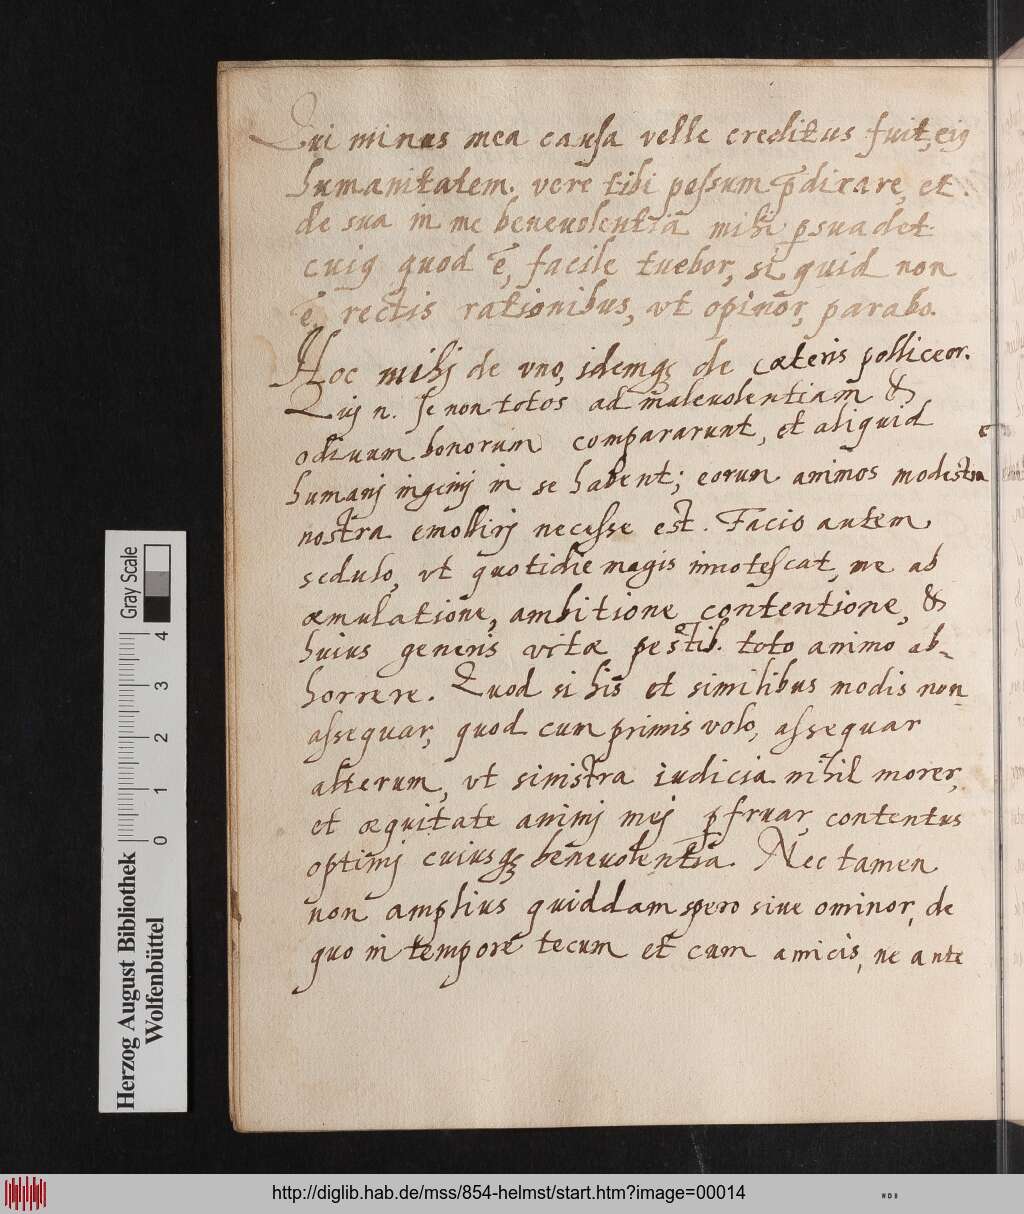 Qui minus mea causa velle creditus fuit, eiꝯ
humanitatem. vere tibi possum p̄dicare, et
de sua in me beneuolentiā mihi ꝑsuadet.
cuiꝯ quod ē, facile tuebor, si quid non
ē, rectis rationibus, vt opinor, parabo.
Hoc mihj de vno, idemqꝫ de cæteris polliceor.
Quj n. se non totos ad maleuolentiam &
odiuum bonorum compararunt, et aliquid
humanj ingenij in se habent; eorum animos modestia
nostra emollirj necesse est. Facio autem
sedulo, vt quotidie magis innotescat, me ab
æmulatione, ambitione contentione, &
huius generis vitæ pestib. toto animo ab-
horrere. Quod si his et similibus modis non
assequar, quod cum primis volo, assequar
alterum, vt sinistra iudicia nihil morer,
et æquitate animj mej ꝑfruar, contentus
optimj cuiusqꝫ beneuolentia. Nec tamen
non amplius quiddam spero siue ominor, de
quo in tempore tecum et cum amicis, ne ante
Gray Scale
0 1 2 3 4
Herzog August Bibliothek
Wolfenbüttel
http://diglib.hab.de/mss/854-helmst/start.htm?image=00014